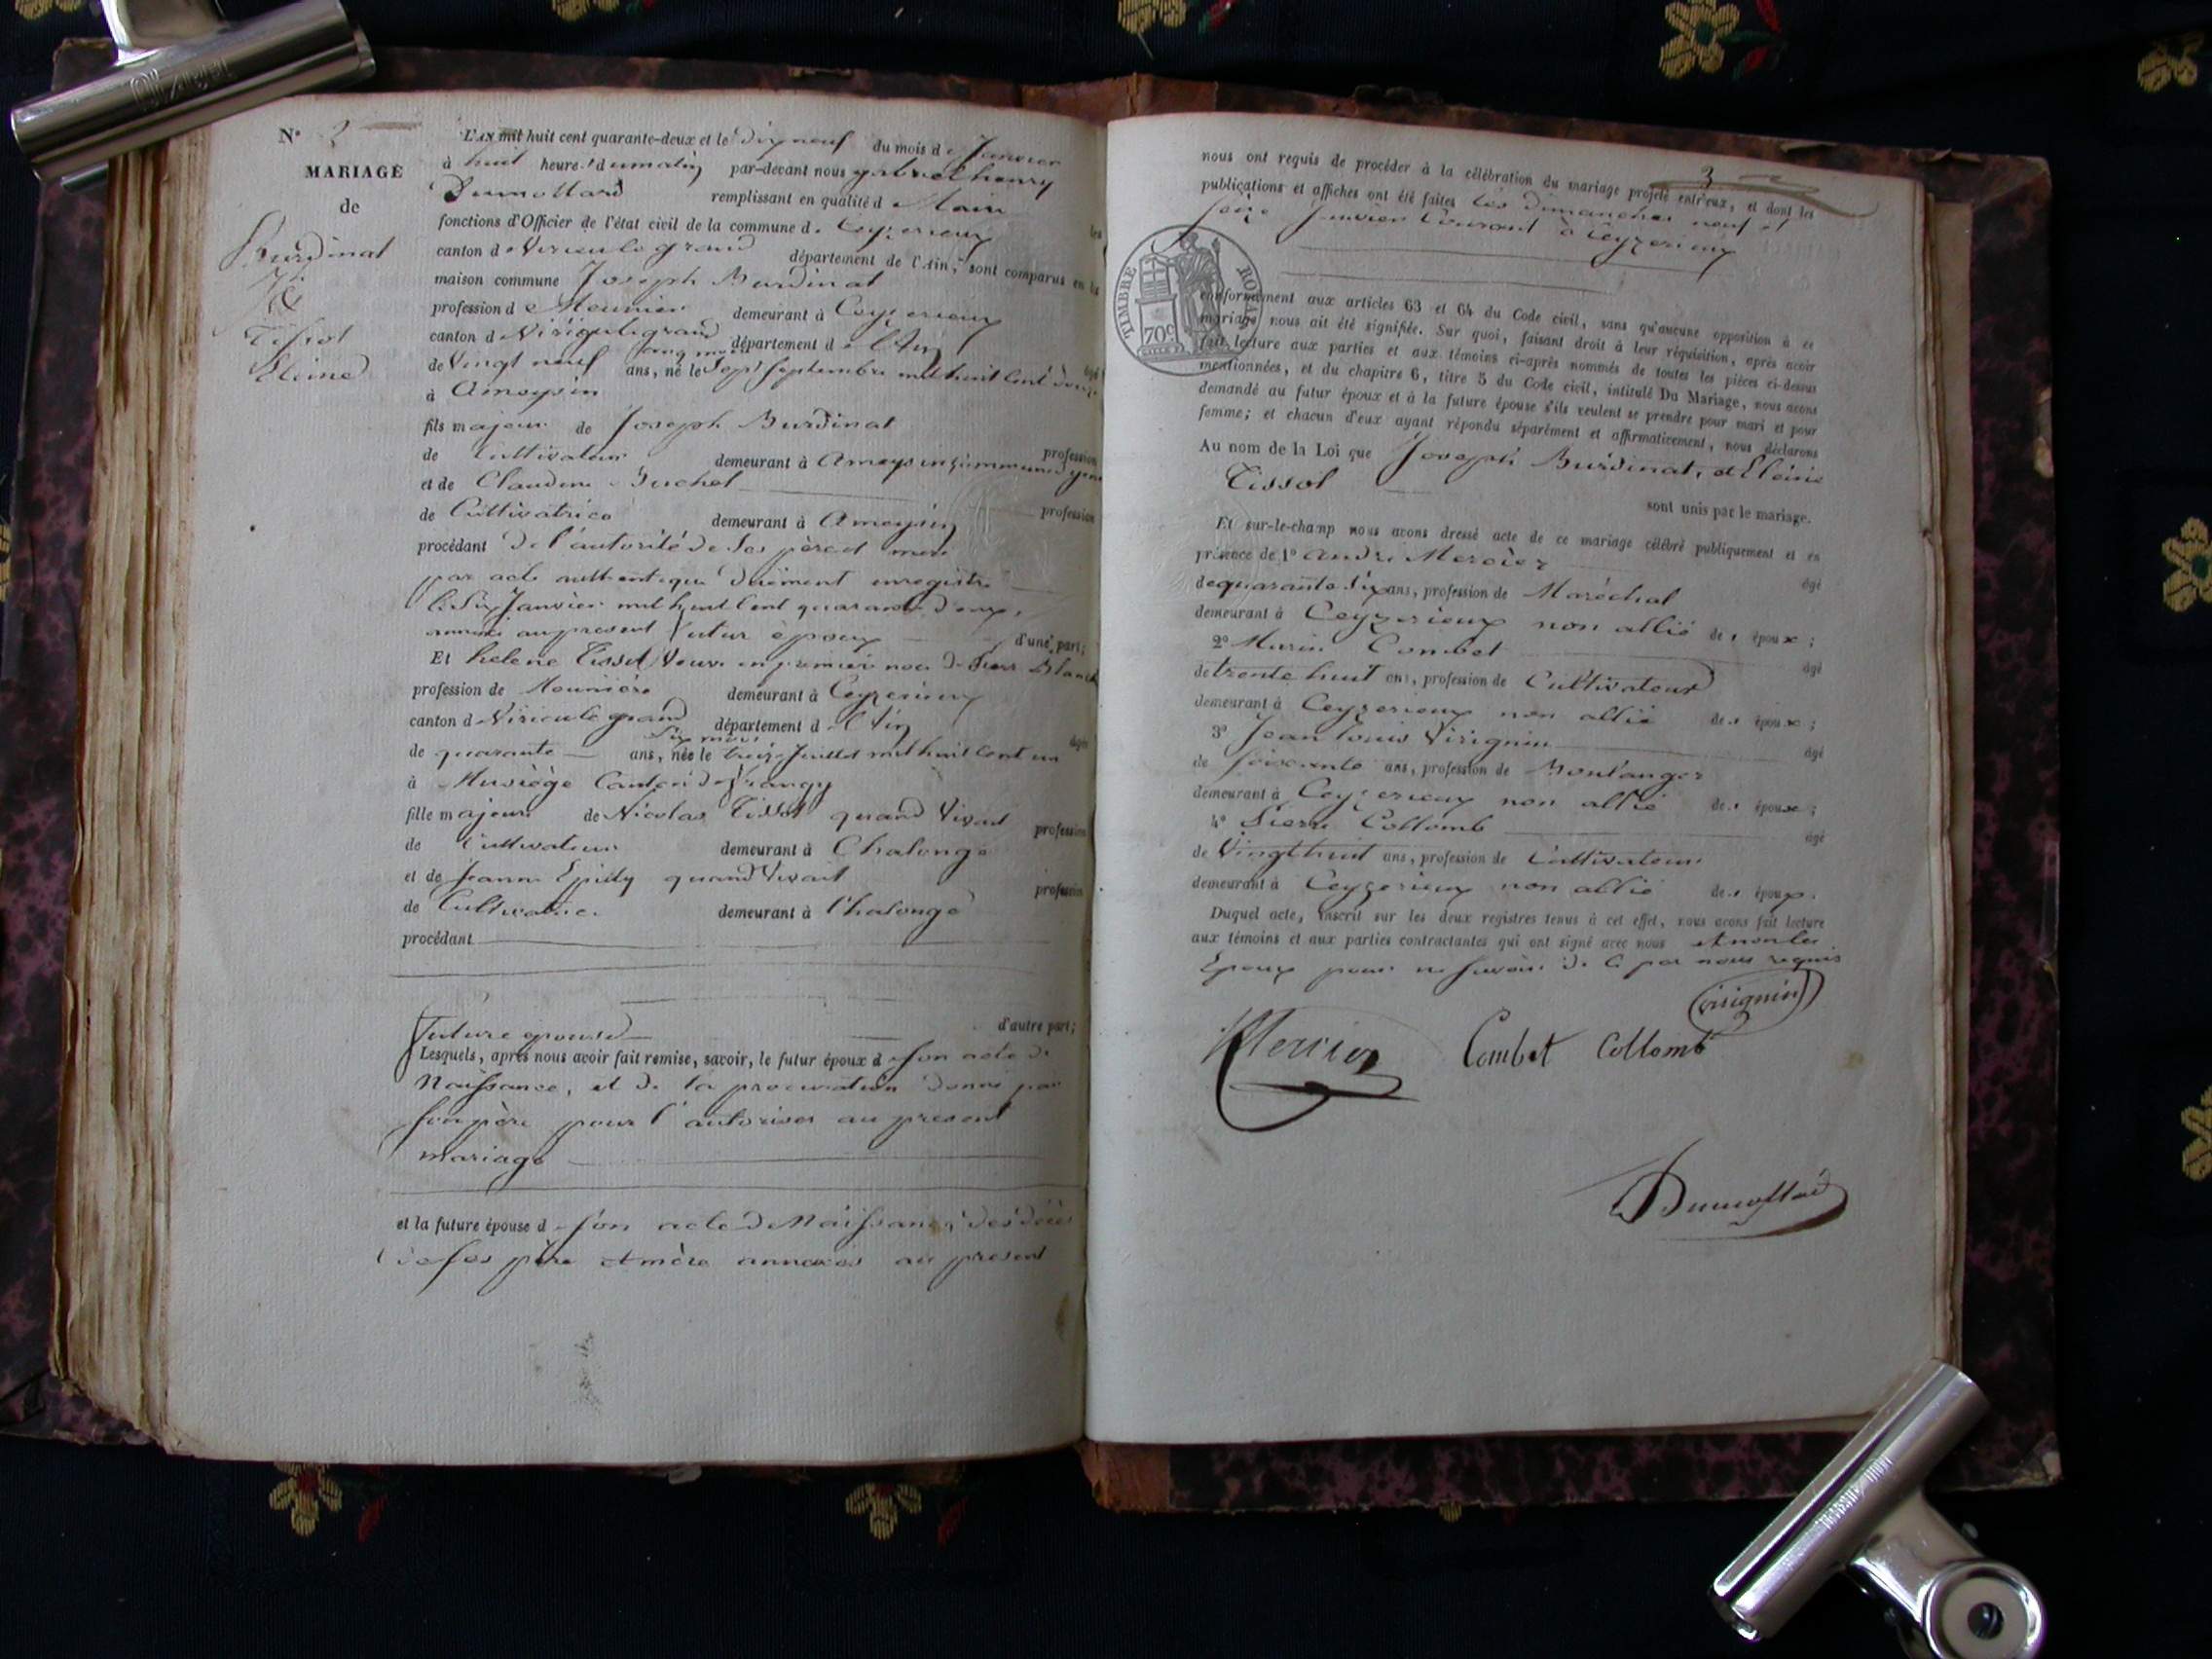 N° 2
MARIAGE
de
Burdinat
&
Tissot
Eleine
L'AN mil huit cent quarante-deux et le dix neuf du mois de Janvier
à huit heures du matin par-devant nous gabriel henry
Dumollard remplissant en qualité de Maire
fonctions d'Officier de l'état civil de la commune de Ceyzerieux les
canton de Virieu le grand département de l'Ain, sont comparus en la
maison commune Joseph Burdinat
profession de Meunier demeurant à Ceyzerieux
canton de Virieu le grand département de l'Ain âgé
de Vingt neuf ans, cinq mois né le Sept Septembre mil huit Cent douze
à Ameysin
fils majeur de Joseph Burdinat profession
de Cultivateur demeurant à Ameysin Commune d'yenne
et de Claudine Suchet profession
de Cultivatrice demeurant à Ameysin
procédant de l'autorité de Ses père et mère
par acte authentique duement enregistré
le Six Janvier mil huit Cent quarante deux,
annexé au présent futur époux d'une part;
Et helene Tissot Veuve en premier noce de Pierre Blanch
profession de Meunière demeurant à Ceyzerieux
canton de Virieu le grand département de l'Ain âgée
de quarante ans, Six mois née le treize Juillet mil huit Cent un
à Musiège Canton de frangy
fille majeure de Nicolas Tissot quand Vivait profession
de Cultivateur demeurant à Chalonge
et de Jeanne quand Vivait profession
de Cultivatrice demeurant à Chalonge
procédant
future épouse d'autre part;
Lesquels, après nous avoir fait remise, savoir, le futur époux de Son acte de
Naissance, et de la procuration donné par
Son père pour l'autoriser au present
mariage
et la future épouse de Son acte de Naissance, des décès
de Ses père et mère annexés au présent
3
nous ont requis de procéder à la célébration du mariage projeté entr'eux, et dont les
publications et affiches ont été faites les dimanches neuf et
Seize Janvier Courant à Ceyzerieux
TIMBRE ROYAL
70c
conformément aux articles 63 et 64 du Code civil, sans qu'aucune opposition à ce
mariage nous ait été signifiée. Sur quoi, faisant droit à leur réquisition, après avoir
fait lecture aux parties et aux témoins ci-après nommés de toutes les pièces ci-dessus
mentionnées, et du chapitre 6, titre 5 du Code civil, intitulé Du Mariage, nous avons
demandé au futur époux et à la future épouse s'ils veulent se prendre pour mari et pour
femme; et chacun d'eux ayant répondu séparément et affirmativement, nous déclarons
Au nom de la Loi que Joseph Burdinat, et Eleine
Tissot sont unis par le mariage.
Et sur-le-champ nous avons dressé acte de ce mariage célébré publiquement et en
présence de 1° andré Mercier âgé
de quarante Six ans, profession de Maréchal
demeurant à Ceyzerieux non allié des époux;
2° Marin Combet âgé
de trente huit ans, profession de Cultivateur
demeurant à Ceyzerieux non allié des époux;
3° Jean Louis Virignin âgé
de Soixante ans, profession de Boulanger
demeurant à Ceyzerieux non allié des époux;
4° Pierre Collomb âgé
de Vingt huit ans, profession de Cultivateur
demeurant à Ceyzerieux non allié des époux.
Duquel acte, inscrit sur les deux registres tenus à cet effet, nous avons fait lecture
aux témoins et aux parties contractantes qui ont signé avec nous et non les
Epoux pour ne Savoir de Ce par nous requis
virignin
Mercier Combet Collomb
Dumollard